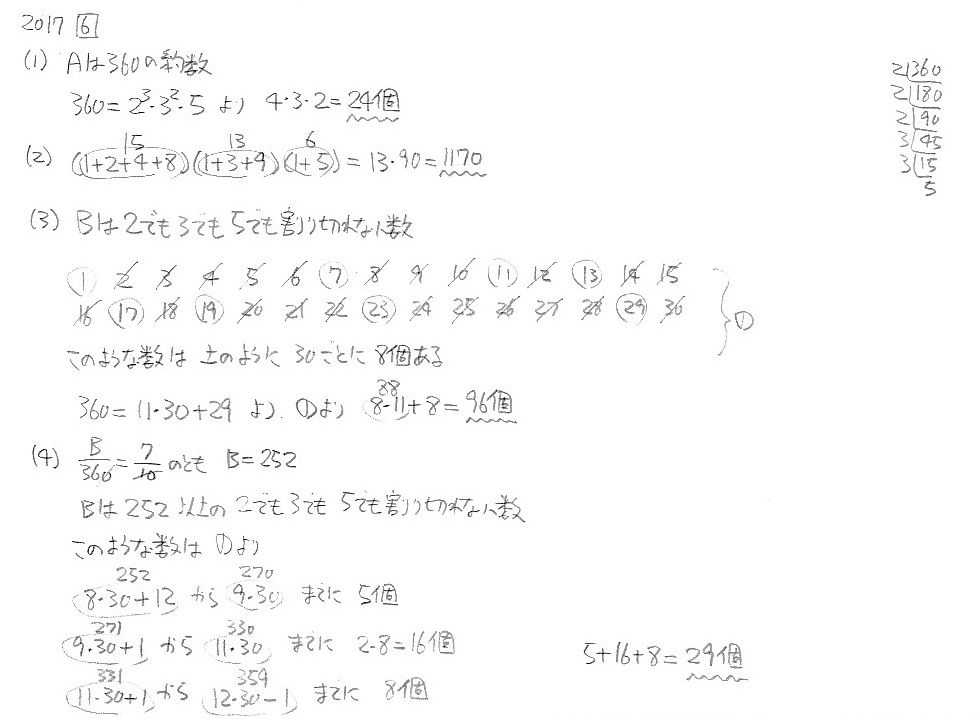 2017 6
(1) Aは360の約数
360=2³・3²・5 より 4・3・2=24個
2)360
2)180
2)90
3)45
3)15
5
15 13 6
(2) (1+2+4+8)(1+3+9)(1+5)=13・90=1170
(3) Bは2でも3でも5でも割り切れない数
1 2 3 4 5 6 7 8 9 10 11 12 13 14 15
16 17 18 19 20 21 22 23 24 25 26 27 28 29 30
①
このような数は 上のように 30ごとに 8個ある
88
360=11・30+29 より、①より 8・11+8=96個
(4) B/360=7/10 のとき B=252
Bは252以上の2でも3でも5でも割り切れない数
このような数は ①より
252 270
8・30+12 から 9・30 までに 5個
271 330
9・30+1 から 11・30 までに 2・8=16個
331 359
11・30+1 から 12・30-1 までに 8個
5+16+8=29個